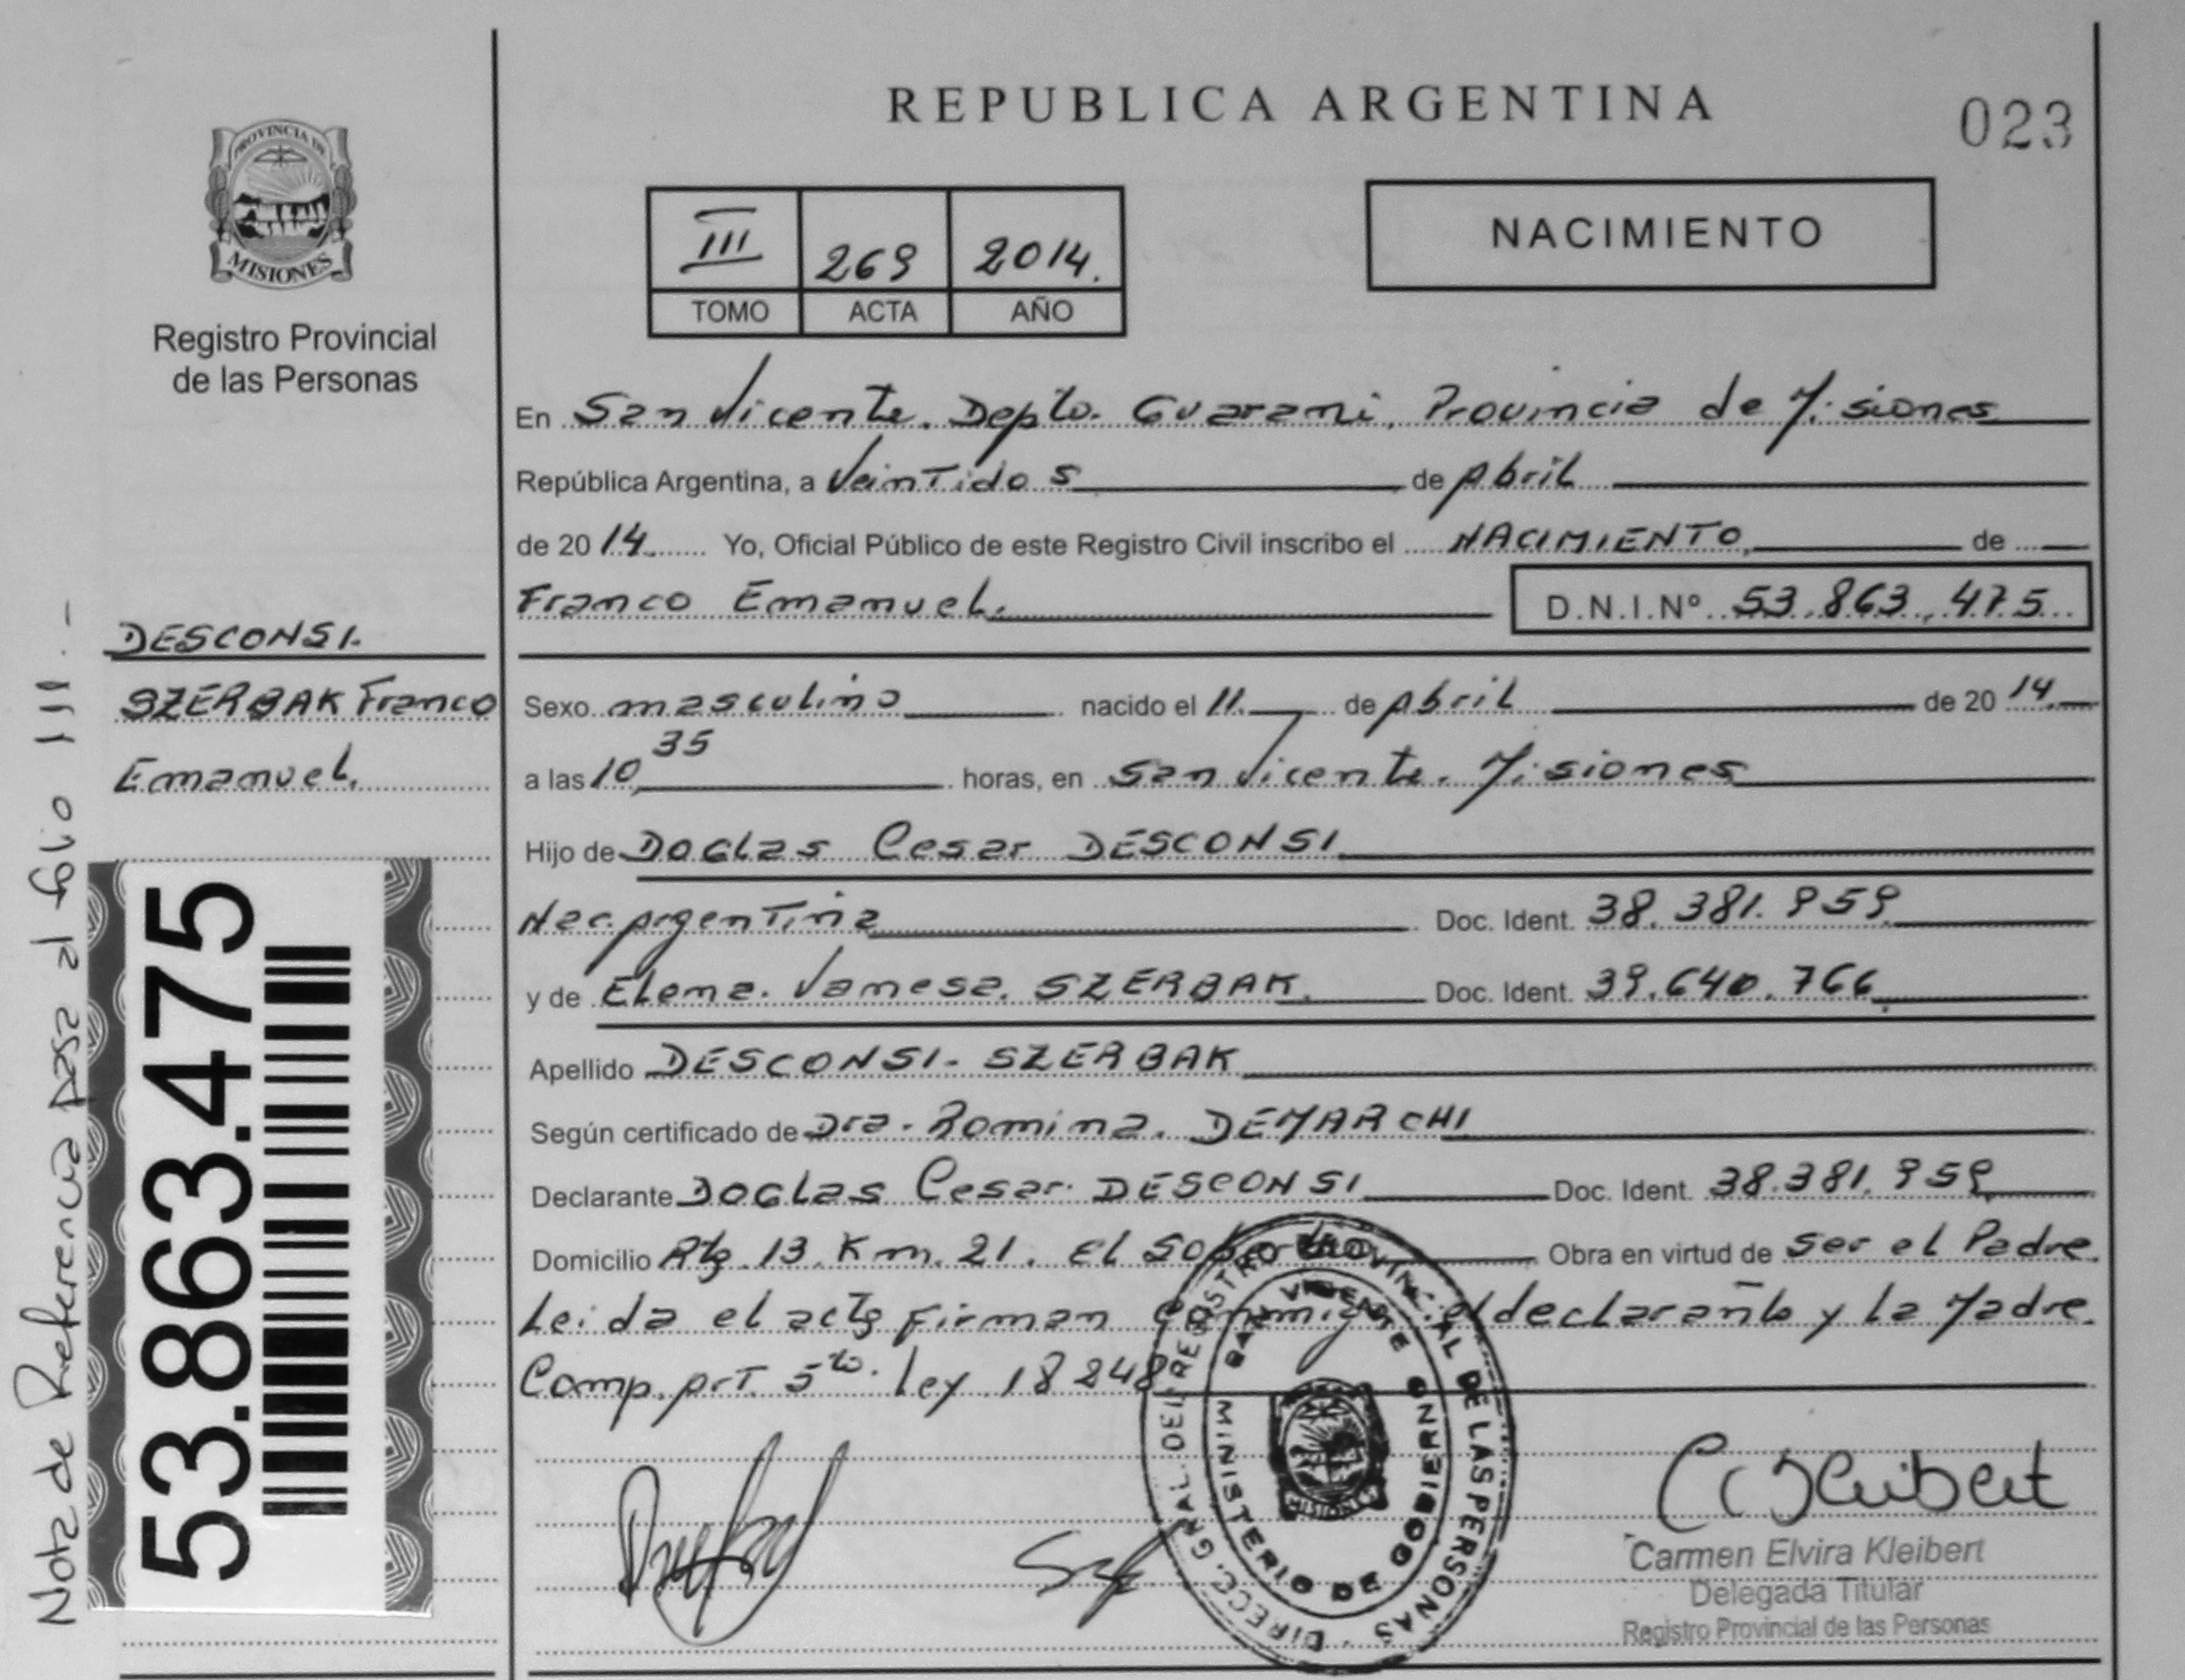 REPUBLICA ARGENTINA
023
PROVINCIA DE
MISIONES
Registro Provincial
de las Personas
III 269 2014.
TOMO ACTA AÑO
NACIMIENTO
En San Vicente. Depto. Guarani, Provincia de Misiones
República Argentina, a Veintidos de Abril
de 2014 Yo, Oficial Público de este Registro Civil inscribo el NACIMIENTO, de
Franco Emanuel. D.N.I.Nº 53.863.475
DESCONSI.
SZERBAK Franco
Emanuel.
Sexo masculino nacido el 11. de Abril de 2014
a las 10 35 horas, en San Vicente. Misiones
Hijo de DOGLas Cesar DESCONSI
Nac. Argentina Doc. Ident. 38.381.959
y de Elena. Vanesa. SZERBAK. Doc. Ident. 39.640.766
Apellido DESCONSI- SZERBAK
Según certificado de Dra. Romina. DEMARCHI
Declarante DOGLas Cesar. DESCONSI Doc. Ident. 38.381.959
Domicilio Rta. 13. Km. 21. El Soberbio Obra en virtud de ser el Padre.
Leida el acta Firman Conmigo el declarante y la Madre.
Comp. Art. 5to. Ley 18248
53.863.475
Nota de Referencia Pasa al folio 111.-
DIRECC. GRAL. DEL REGISTRO PROVINCIAL DE LAS PERSONAS
MINISTERIO DE GOBIERNO
SAN VICENTE
C Kleibert
Carmen Elvira Kleibert
Delegada Titular
Registro Provincial de las Personas